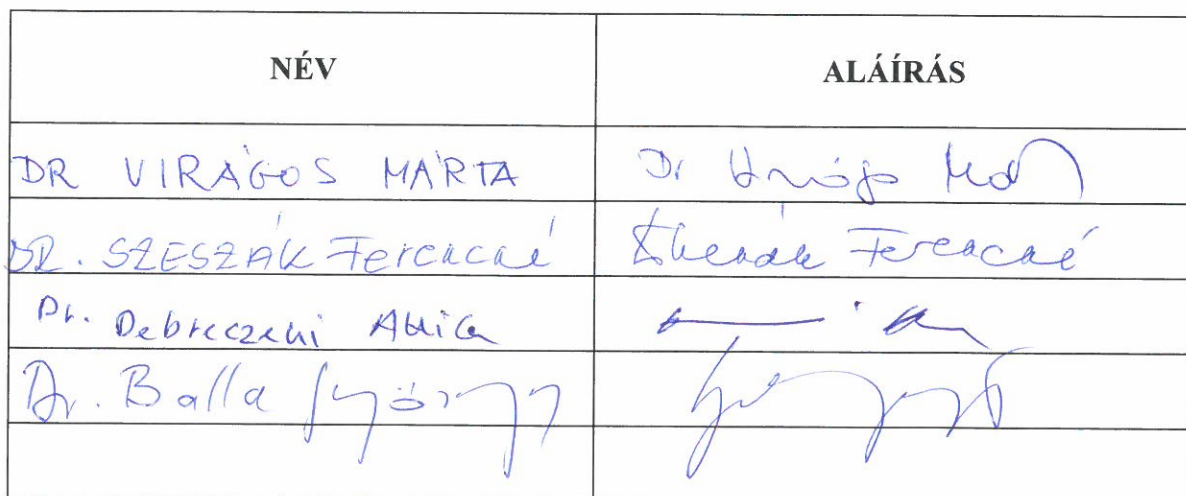 NÉV ALÁÍRÁS
DR VIRÁGOS MÁRTA Dr Virágos
DR. SZESZÁK Ferencné Szeszák Ferencné
Dr. Debreczeni Attila
Dr. Balla György